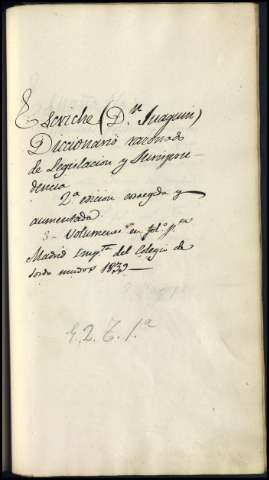 Escriche (D.n Juaquin)
Diccionario razonado
de Legislacion y Jurispru-
dencia
2ª edicion corregida y
aumentada
3 - Volumenes en fol.º p.ta
Madrid Imp.ta del Colegio de
sordo mudos 1839 —
E. 2. T. 1.ª